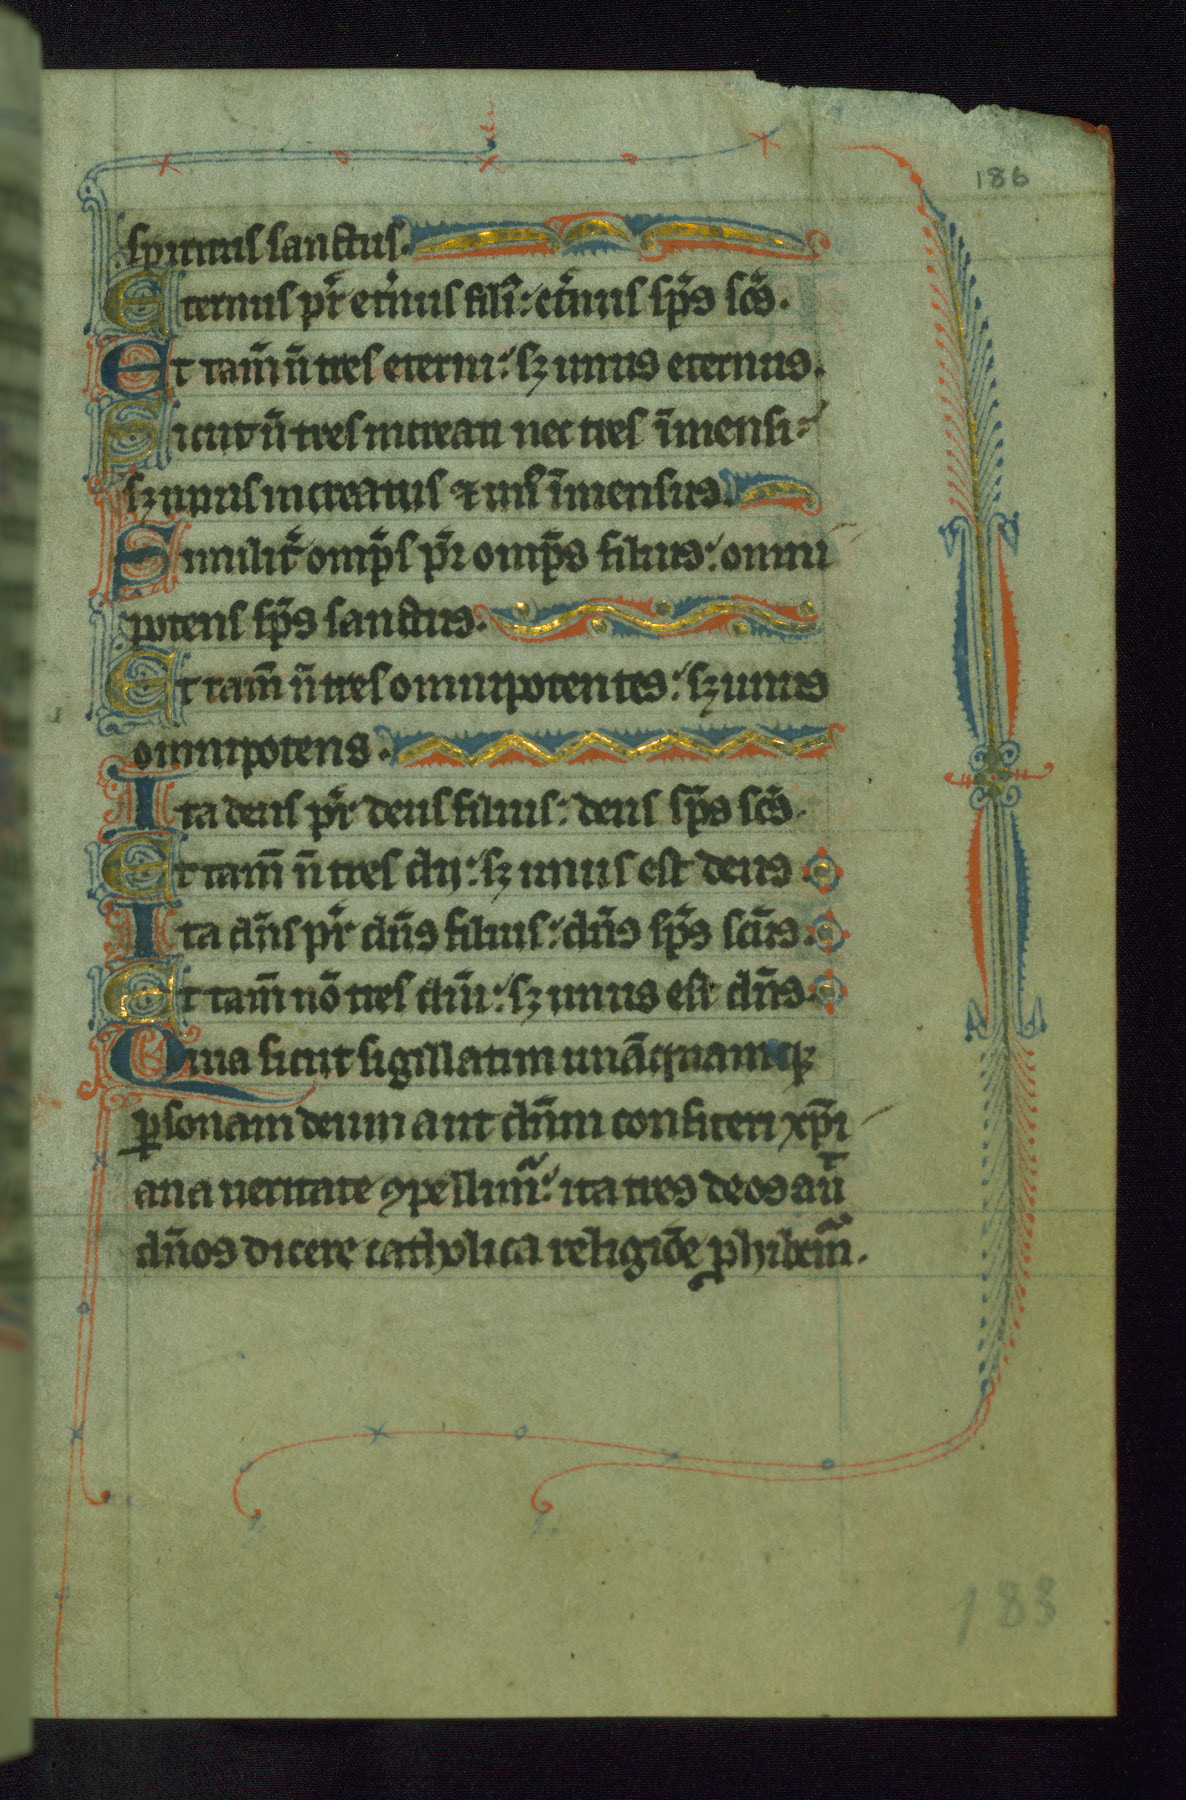 186
spiritus sanctus.
Eternus pr̃ et̃nus fili᷒: et̃nus sp̃s sc̃s.
Et tam̃ ñ tres eterni: sꝫ unus eternus.
Sicut ñ tres increati nec tres ĩmensi:
sꝫ unus increatus ⁊ un᷒ ĩmensus.
Similit̃ omp̃s pr̃ omp̃s filius: omni
potens sp̃s sanctus.
Et tam̃ ñ tres omnipotentes: sꝫ unus
omnipotens.
Ita deus pr̃ deus filius: deus sp̃s sc̃s.
Et tam̃ ñ tres dij: sꝫ unus est deus.
Ita dñs pr̃ dñs filius: dñs sp̃s sc̃us.
Et tam̃ nõ tres dñi: sꝫ unus est dñs.
Quia sicut sigillatim unãquamqꝫ
ꝑsonam deum aut dñm confiteri xp̃i
ana ueritate ꝯpellim᷒: ita tres deos aũt
dños dicere catholica religiõe ꝓhibem᷒.
183